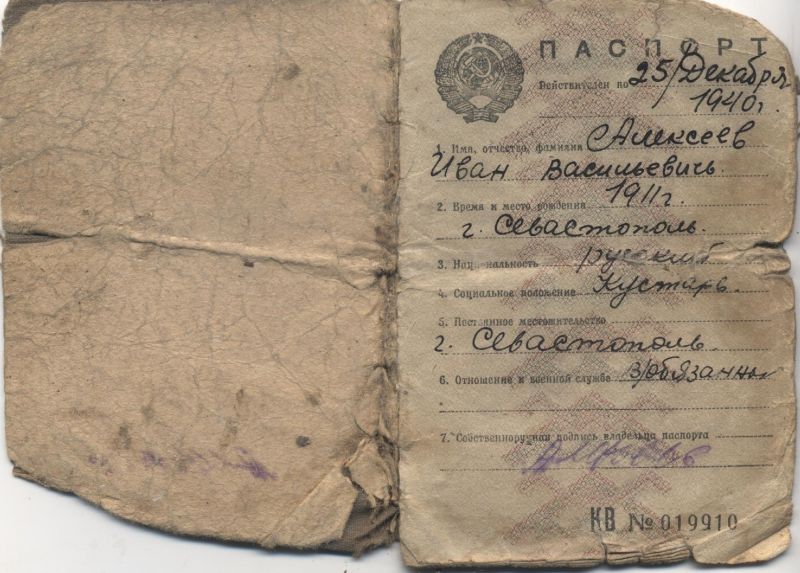 ПАСПОРТ
Действителен по 25/Декабря
1940г.
1. Имя, отчество, фамилия Алексеев
Иван Васильевичь.
2. Время и место рождения 1911г.
г. Севастополь.
3. Национальность русский
4. Социальное положение Кустарь.
5. Постоянное местожительство
г. Севастополь.
6. Отношение к военной службе в/обязанный
7. Собственноручная подпись владельца паспорта
КВ № 019910